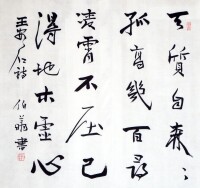 天質自森〻
孤高幾百尋
凌霄不屈己
得地本虛心
王安石詩 伯 書